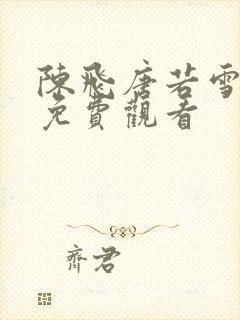 陳飛唐若雪
免費觀看
齊君